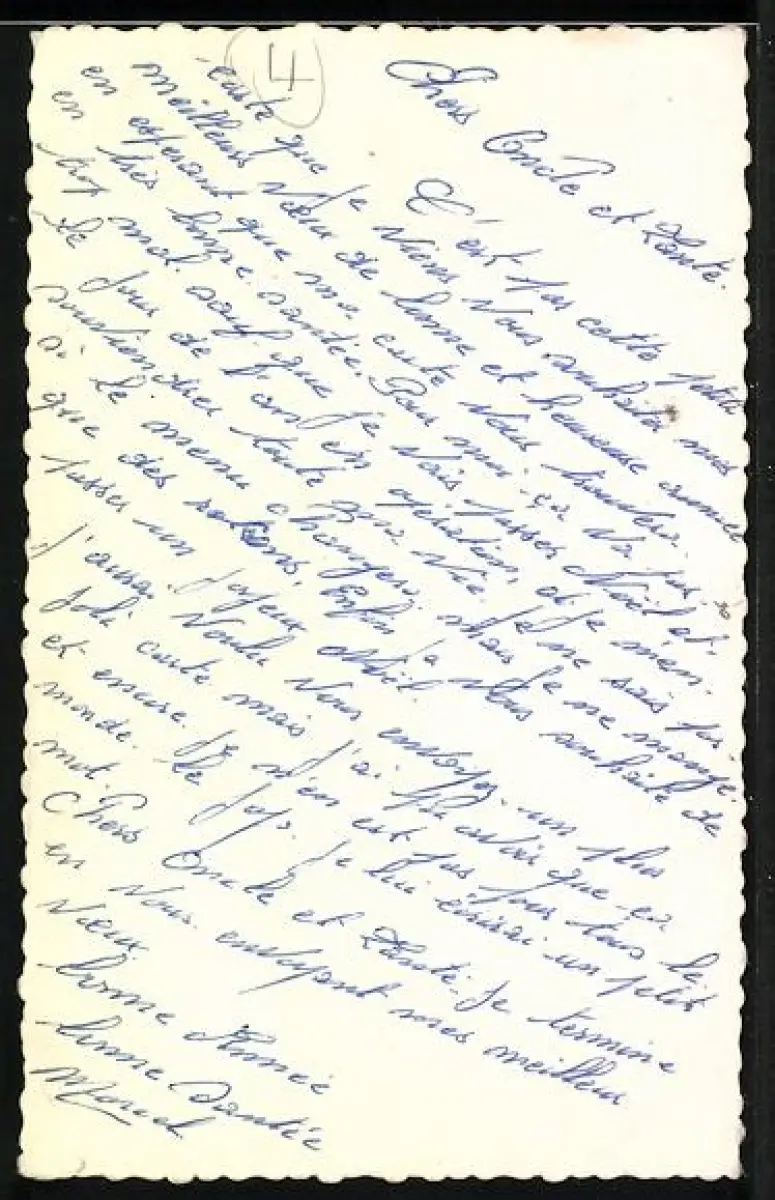 4
Chers Oncle et Tante.
C'est par cette petite
carte que je viens vous souhaiter mes
meilleurs vœux de bonne et heureuse année
en esperant que ma carte vous trouvera
en très bonne santée. Pour moi ça va pas
trop mal sauf que je vais passer Noël et
le jour de l'an en opération, et je m'en
souviendrai toute ma vie. Je ne sais pas
si le menu changera. mais je ne mange
que des rations, Enfin je vous souhaite de
passer un joyeux Noël.
J'aurai voulu vous envoyer un plus
joli carte mais j'ai que ça
et encore. Je n'en est pas pour tous le
monde. Le Jojo. Je lui écrirai un petit
mot.
Chers Oncle et Tante. Je termine
en vous envoyant mes meilleur
vieux.
bonne Année
bonne Santée
Marcel